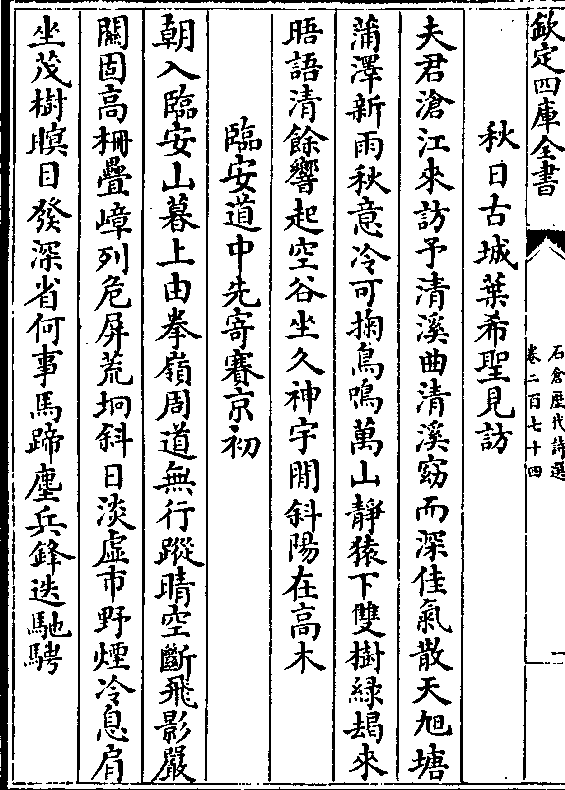 欽定四庫全書
石倉歷代詩選
卷二百七十四
一
秋日古城葉希聖見訪
夫君滄江來訪予清溪曲清溪窈而深佳氣散天旭塘
蒲澤新雨秋意冷可掬鳥鳴萬山靜猿下雙樹綠朅來
晤語清餘響起空谷坐久神宇閒斜陽在高木
臨安道中先寄賽京初
朝入臨安山暮上由拳嶺周道無行蹤晴空斷飛影嚴
關固高柵疊嶂列危屏荒坰斜日淡虛市野煙冷息肩
坐茂樹瞑目發深省何事馬蹄塵兵鋒迭馳騁